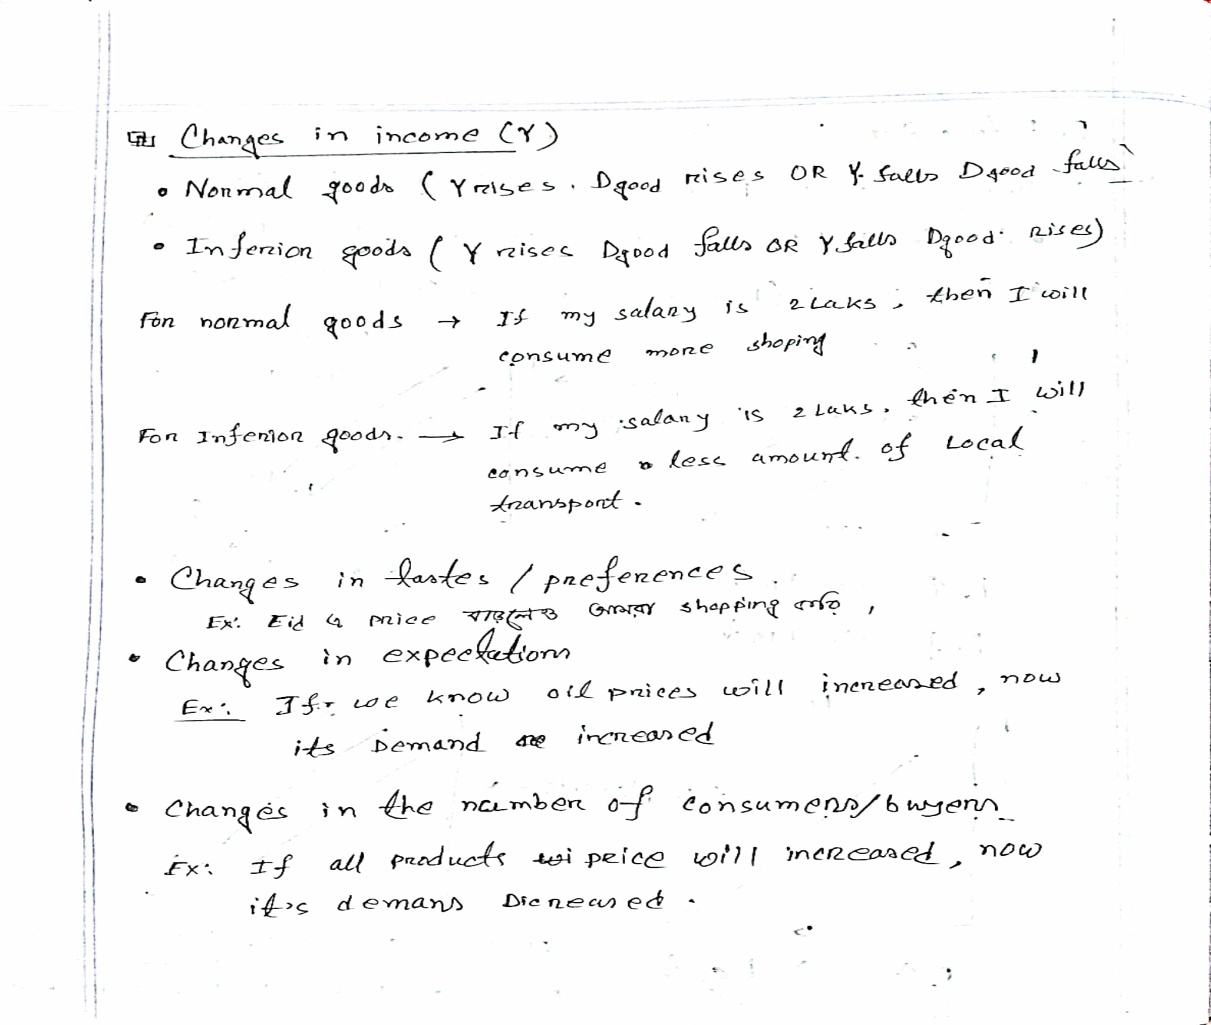 Changes in income (Y)
• Normal goods (Y rises. Dgood rises OR Y falls Dgood falls)
• Inferior goods (Y rises Dgood falls OR Y falls Dgood rises)
For normal goods → If my salary is 2 Laks, then I will
consume more shoping
For Inferior goods. → If my salary is 2 Laks, then I will
consume less amount of Local
transport.
• Changes in tastes / preferences.
Ex: Eid এ price বাড়লেও আমরা shopping করি,
• Changes in expectations
Ex: If we know oil prices will increased, now
its Demand are increased
• Changes in the number of consumers/buyers
Ex: If all products price will increased, now
it's demans Dicreased.